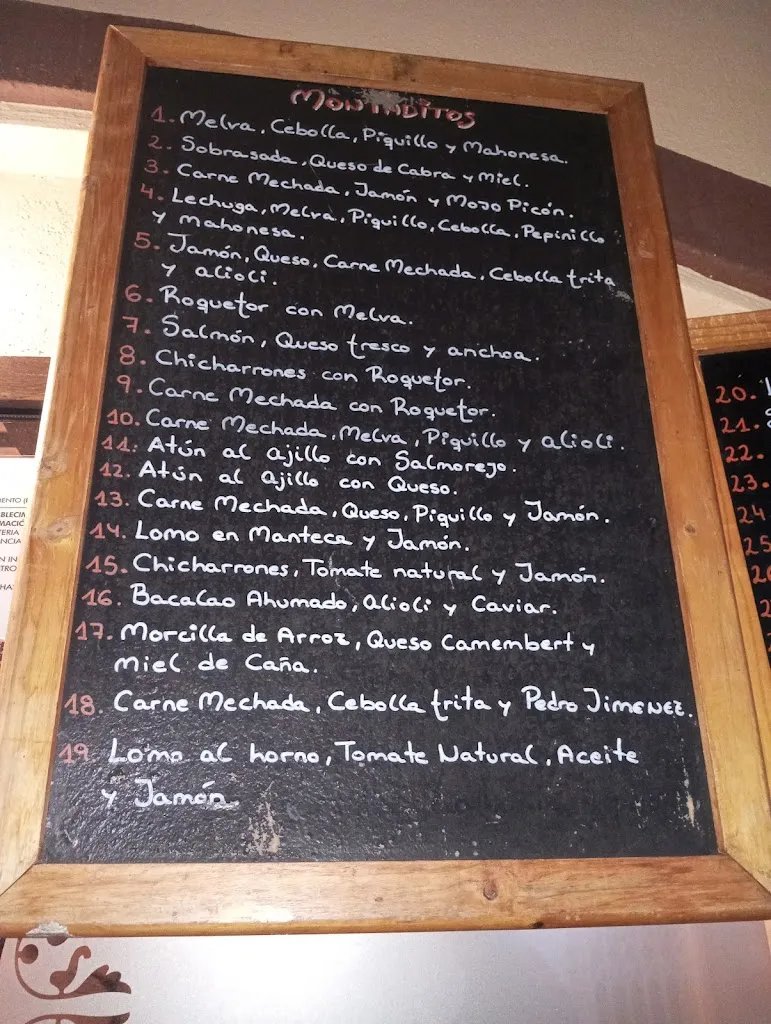 MONTADITOS
1. Melva, Cebolla, Piquillo y Mahonesa.
2. Sobrasada, Queso de Cabra y Miel.
3. Carne Mechada, Jamón y Mojo Picón.
4. Lechuga, Melva, Piquillo, Cebolla, Pepinillo
y Mahonesa.
5. Jamón, Queso, Carne Mechada, Cebolla frita
y alioli.
6. Roquefor con Melva.
7. Salmón, Queso fresco y anchoa.
8. Chicharrones con Roquefor.
9. Carne Mechada con Roquefor.
10. Carne Mechada, Melva, Piquillo y alioli.
11. Atún al ajillo con Salmorejo.
12. Atún al ajillo con Queso.
13. Carne Mechada, Queso, Piquillo y Jamón.
14. Lomo en Manteca y Jamón.
15. Chicharrones, Tomate natural y Jamón.
16. Bacalao Ahumado, alioli y Caviar.
17. Morcilla de Arroz, Queso Camembert y
Miel de Caña.
18. Carne Mechada, Cebolla frita y Pedro Jimenez.
19 Lomo al horno, Tomate Natural, Aceite
y Jamón.
20.
21.
22.
23.
24
25